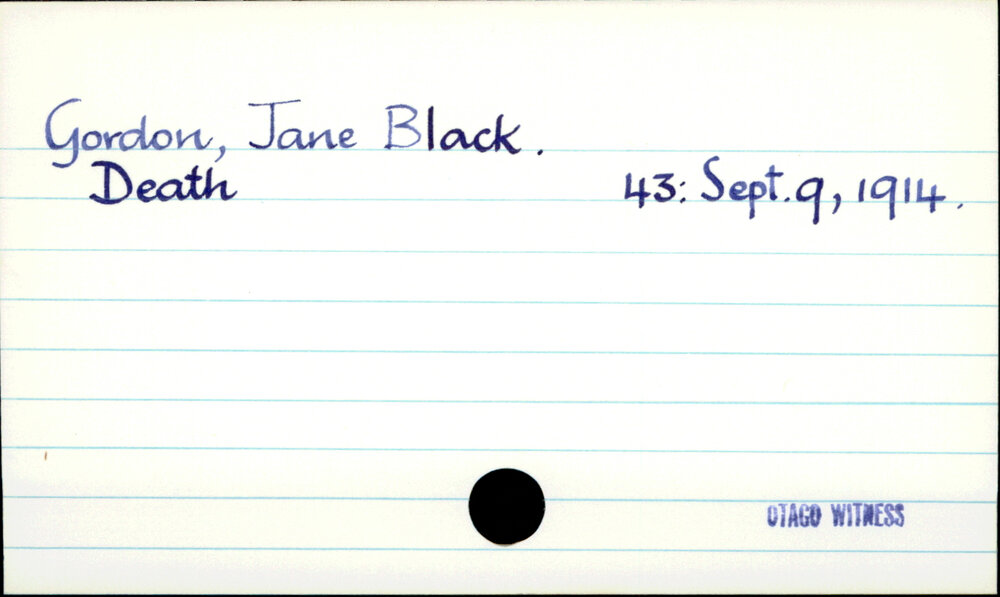 Gordon, Jane Black.
Death 43: Sept. 9, 1914.
OTAGO WITNESS